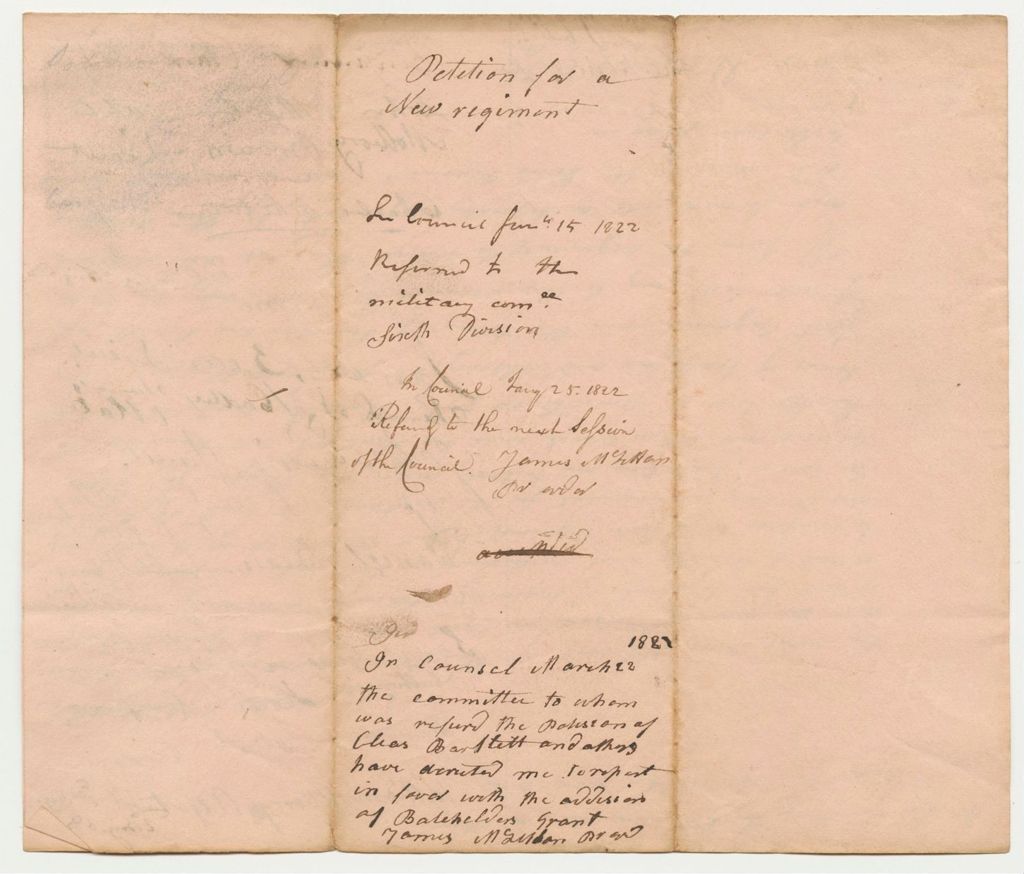 Petition for a
New regiment
In Council Jan 15 1822
Referred to the
military comee
Sixth Division
In Council Jany 25. 1822
Refered to the next Session
of the Council. James McLellan
Pr order
1822
In Counsel March 22
the committee to whom
was refurd the Patision of
Cleas Bartlett and athers
have derected me to report
in favor with the addision
of Batchelders Grant
James McLellan Pr ord